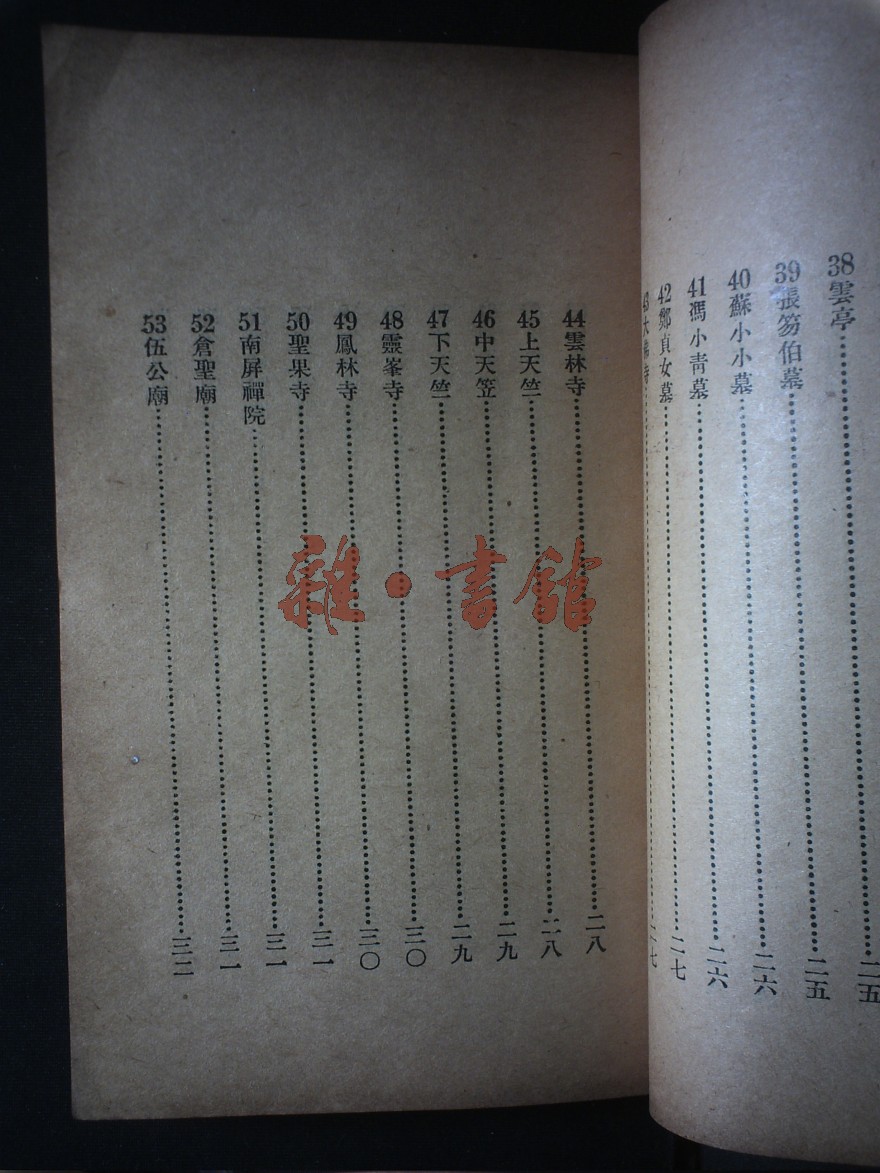 38雲亭……二五
39張笏伯墓……二五
40蘇小小墓……二六
41馮小青墓……二六
42鄭貞女墓……二七
43大佛寺……二七
44雲林寺……二八
45上天竺……二八
46中天笠……二九
47下天竺……二九
48靈峯寺……三〇
49鳳林寺……三〇
50聖果寺……三一
51南屏禪院……三一
52倉聖廟……三一
53伍公廟……三二
雜·書館